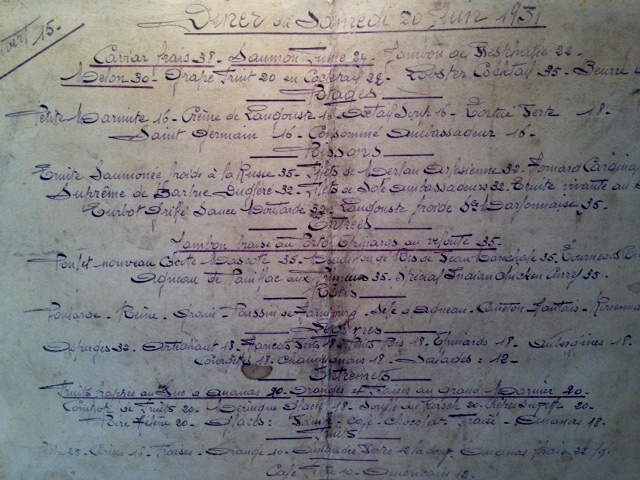 Couvert 15.-
Diner du Samedi 20 Juin 1931
Caviar frais 38 - Saumon fumé 24 - Jambon de Westphalie 22 -
Melon 30 - Grape Fruit 20 en Cocktail 22 - Lobster Cocktail 35 - Beurre
Potages
Petite Marmite 16 - Crème de Langouste 16 - Oxtail Soup 16 - Tortue Verte 18 -
Saint Germain 16 - Consommé Ambassadeur 16 -
Poissons
Truite Saumonée froide à la Russe 35 - Filets de Merlan Arlésienne 32 - Homard Cardinal
Suprême de Barbue Dugléré 32 - Filets de Sole Ambassadeurs 32 - Truite vivante au
Turbot Grillé Sauce Moutarde 32 - Langouste froide Sce Narbonnaise 35 -
Entrées
Jambon braisé au Porto Epinards au velouté 35
Poulet nouveau Cocotte Mascotte 35 - de Ris de Veau 35 - Tournedos
Agneau de Pauillac aux Primeurs 35 - Spécial Indian Chicken Curry 35 -
Rotis
Poularde - Reine - Grain - Poussin de Hambourg - Selle d'Agneau - Caneton Nantais - Rouennais
Légumes
Asperges 32 - Artichaut 18 - Haricots Verts 18 - Petits Pois 18 - Epinards 18 - Aubergines 18 -
Courgettes 18 - Champignons 18 - Salades : 12 -
Entremets
Fruits frappés au Suc d'Ananas 20 - Oranges et Fraises au Grand Marnier 20 -
Compote de Fruits 20 - Meringue Glacée 18 - Soufflé au Kirsch 20 - Crêpes Suzette 20 -
Poire Hélène 20 - Glaces : Vanille - Café - Chocolat - Praliné - Ananas 18 -
Fruits
25 - Cerises 16 - Fraises - Orange 10 - Amandes Vertes 12 la douz. Ananas frais
Café Filtre 10 - Américain 12 -